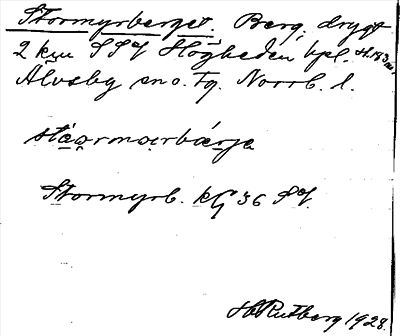 Stormyrberget. Berg, drygt
2 km SSV Högheden hpl.
Älvsby sn o. Tg. Norrb. l.
Stormyrb. kG 36 SV.
H. Rutberg 1928.